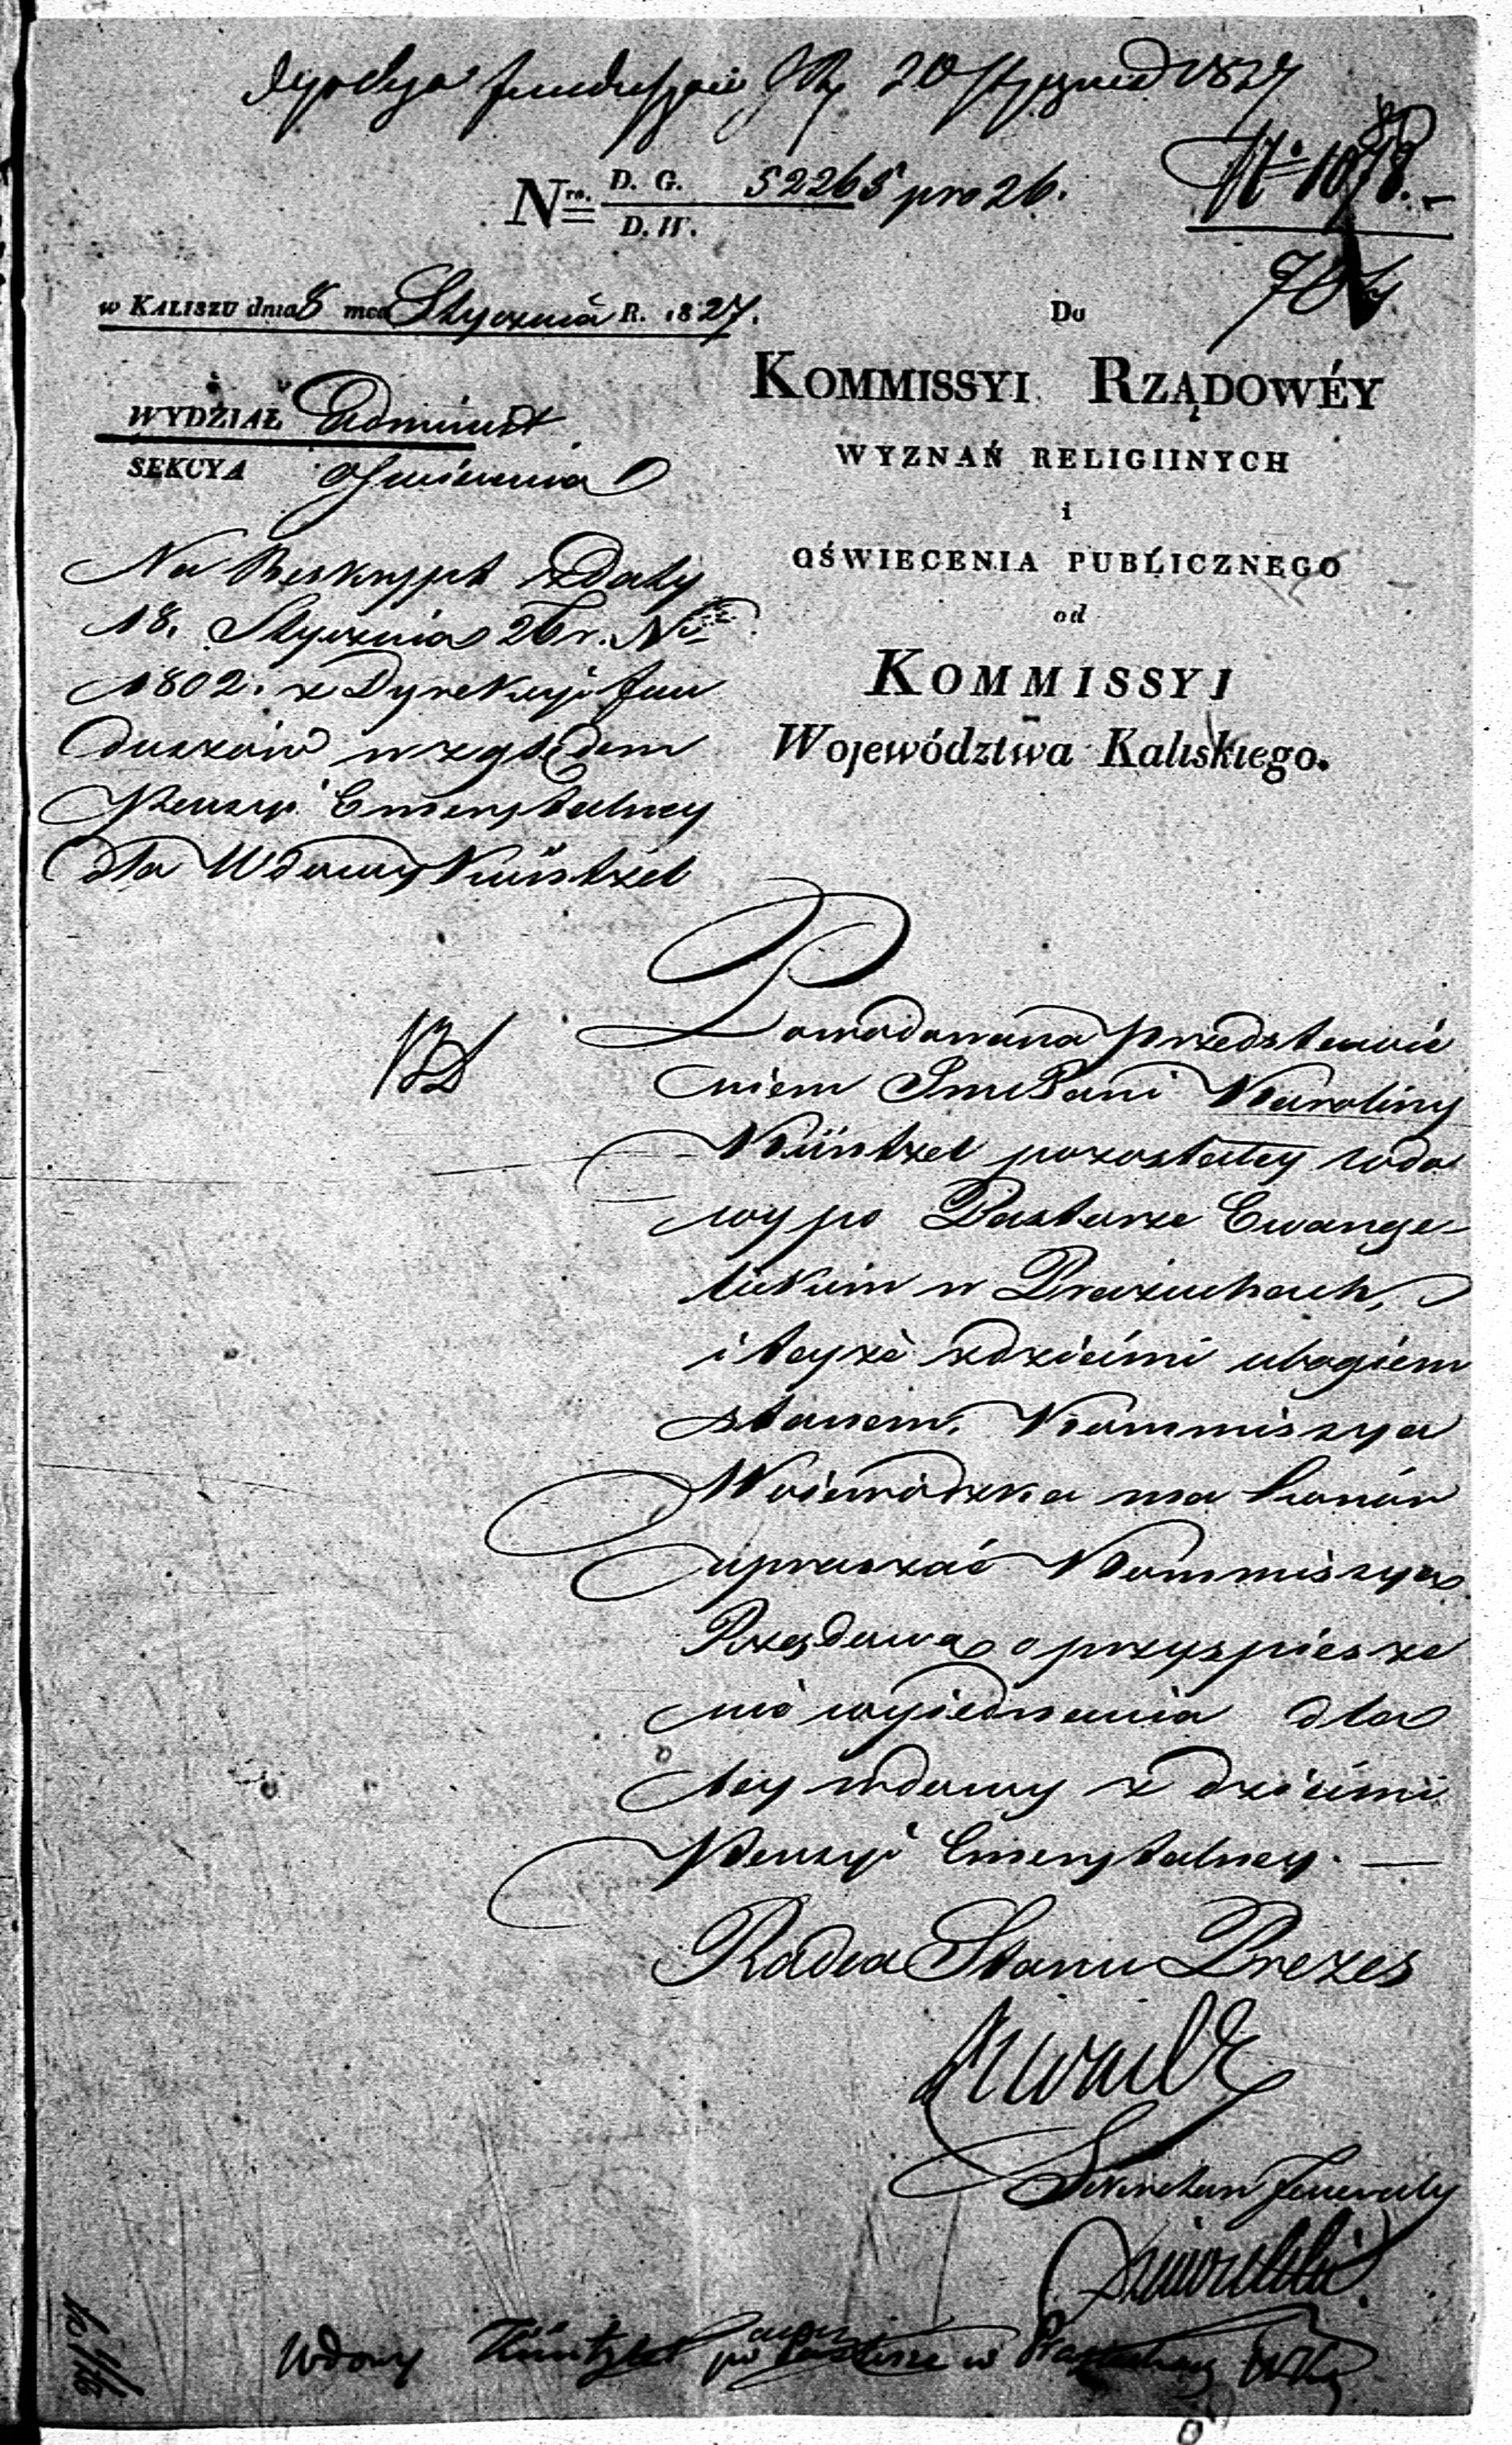 20 Stycznia 1827
Nro. D. G. 52265 pro 26.
D. W.
No 1078.
w KALISZU dnia 8 mca Stycznia R. 1827.
WYDZIAŁ Administ.
SEKCYA Oświecenia
Na Reskrypt z Daty
18. Stycznia 26 r. No
1802. z Dyrekcyi Fun
duszów względem
Pensyi Emerytalney
dla Wdowy Küntzel
Do
KOMMISSYI RZĄDOWÉY
WYZNAŃ RELIGIINYCH
i
OŚWIECENIA PUBLICZNEGO
od
KOMMISSYI
Województwa Kaliskiego.
Powodowana przedstawie
niem Jmć Pani Karoliny
Küntzel pozostałey wdo
wy po Pastorze Ewange-
lickim w Prażuchach,
i teyże z dziećmi ubogiem
stanem, Kommissya
Woiewódzka ma honór
upraszać Kommissyą
Rządową o przyspiesze
nie wyiednania dla
tey wdowy z dziećmi
Pensyi Emerytalney. —
Radca Stanu Prezes
Sekretarz Jeneralny
Wdowy Küntzel po Pastorze w